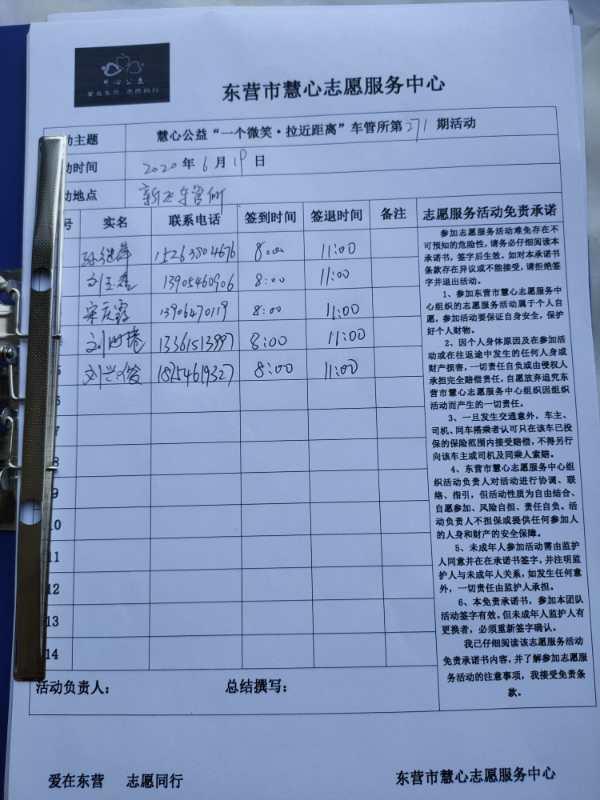 慧心公益
爱在东营 志愿同行
东营市慧心志愿服务中心
动主题 慧心公益“一个微笑·拉近距离”车管所第271期活动
动时间 2020年6月19日
动地点 新区车管所
号 实名 联系电话 签到时间 签退时间 备注 志愿服务活动免责承诺
15263804676 8:00 11:00
13905460906 8:00 11:00
宋庆霞 13906470119 8:00 11:00
13361513997 8:00 11:00
5 刘兰俊 18254619327 8:00 11:00
6
7
8
9
10
11
12
13
14
参加志愿活动难免存在不
可预知的危险性，请务必仔细阅读本
承诺书，签字后生效。如对本承诺书
条款存在异议或不能接受，请拒绝签
字并退出活动。
1、参加东营市慧心志愿服务中
心组织的志愿服务活动属于个人自
愿，参加活动要保证自身安全，保护
好个人财物。
2、因个人身体原因及在参加活
动或在往返途中发生的任何人身或
财产损害，一切责任自负或由侵权人
承担完全赔偿责任，自愿放弃追究东
营市慧心志愿服务中心组织因组织
活动而产生的一切责任。
3、一旦发生交通意外，车主、
司机、同车搭乘者认可只在该车已投
保的保险范围内接受赔偿，不得另行
向该车主或司机及同乘人索赔。
4、东营市慧心志愿服务中心组
织活动负责人对活动进行协调、联
络、指引，但活动性质为自由结合、
自愿参加、风险自担、责任自负。活
动负责人不担保或提供任何参加人
的人身和财产的安全保障。
5、未成年人参加活动需由监护
人同意并在在承诺书签字，并注明监
护人与未成年人关系，如发生任何意
外，一切责任由监护人承担。
6、本免责承诺书，参加本团队
活动签字有效。但未成年人监护人有
更换者，必须重新签字确认。
我已仔细阅读该志愿服务活动
免责承诺书内容，并了解参加志愿服
务活动的注意事项，我接受免责条
款。
活动负责人： 总结撰写：
爱在东营 志愿同行 东营市慧心志愿服务中心